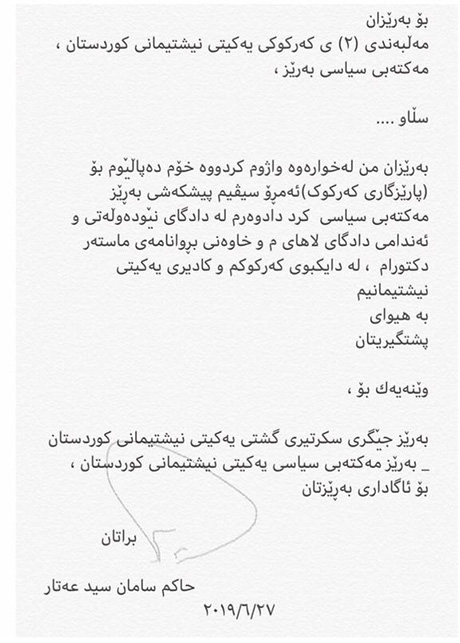 بۆ بەرێزان
مەڵبەندی (٢) ی کەرکوکی یەکیتی نیشتیمانی کوردستان ،
مەکتەبی سیاسی بەرێز ،
سڵاو ....
بەرێزان من لەخوارەوە واژوم کردووە خۆم دەپاڵێوم بۆ
(پارێزگاری کەرکوک)ئەمرۆ سیڤیم پیشکەشی بەڕێز
مەکتەبی سیاسی کرد دادوەرم لە دادگای نێودەوڵەتی و
ئەندامی دادگای لاهای م و خاوەنی بڕوانامەی ماستەر
دکتورام ، لە دایکبوی کەرکوکم و کادیری یەکیتی
نیشتیمانیم
بە هیوای
پشتگیریتان
وێنەیەك بۆ ،
بەرێز جێگری سکرتیری گشتی یەکیتی نیشتیمانی کوردستان
_ بەرێز مەکتەبی سیاسی یەکیتی نیشتیمانی کوردستان ،
بۆ ئاگاداری بەڕێزتان
براتان
حاکم سامان سید عەتار
٢٠١٩/٦/٢٧